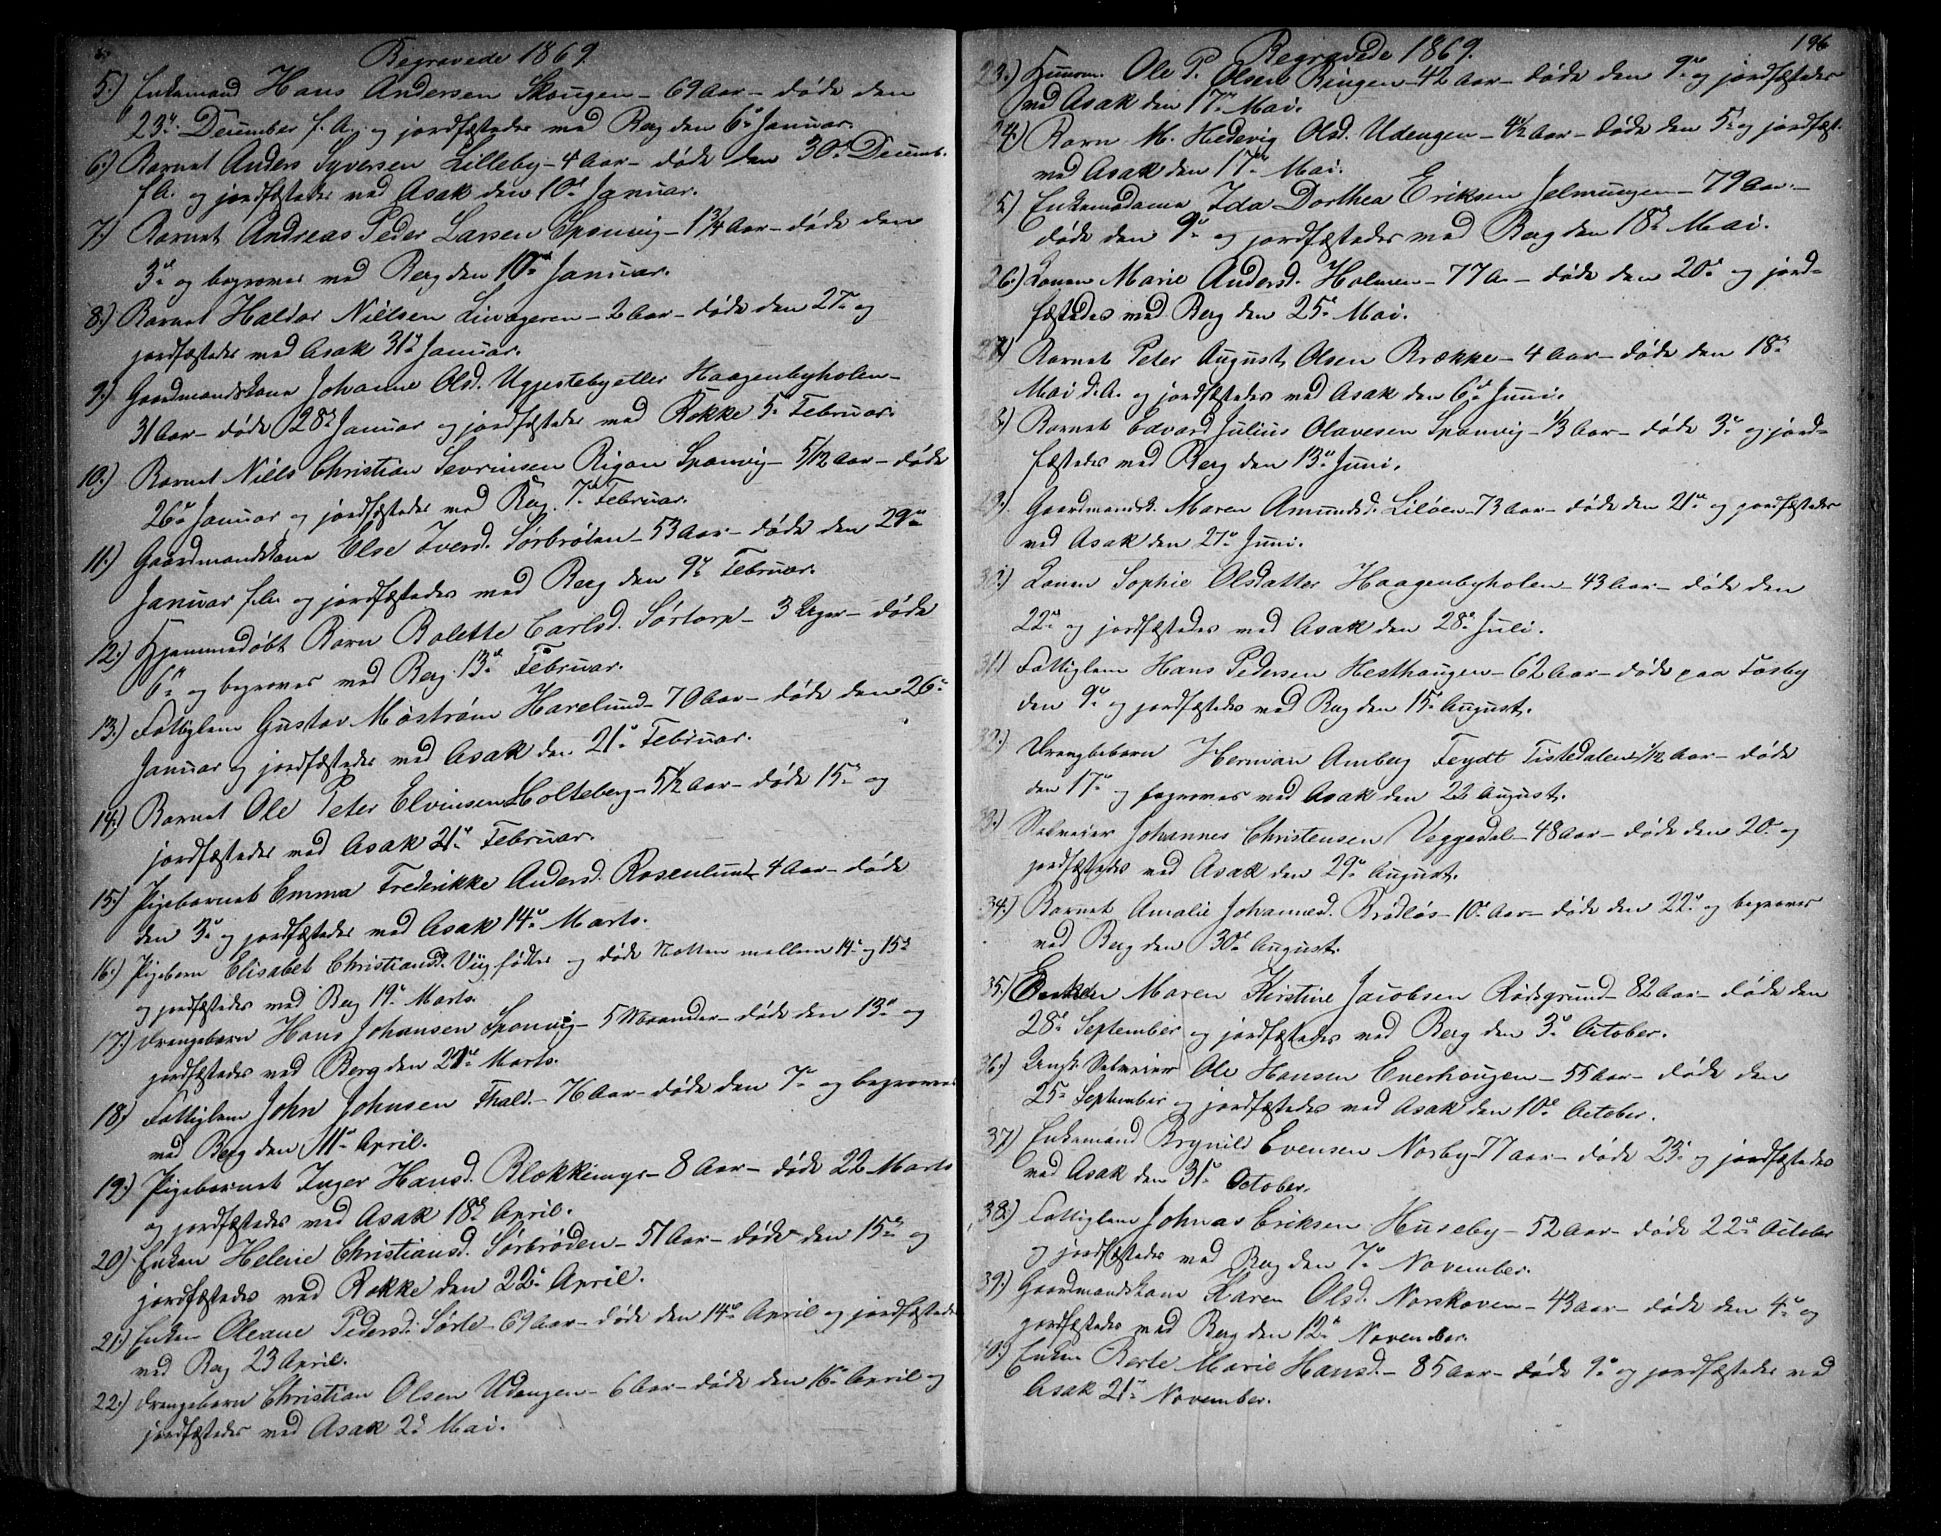 Begravede 1869.
5.) Enkemand Hans Andersen Skougen - 69 Aar - døde den
29de December f. A. og jordfæstedes ved Berg den 6te Januar.
6.) Barnet Anders Syversen Lilleby - 4 Aar - døde den 30te Decemb.
f.A. og jordfæstedes ved Asak den 10de Januar.
7.) Barnet Andreas Peder Larsen Sponvig - 1 3/4 Aar - døde den
3de og begroves ved Berg den 10de Januar.
8.) Barnet Haldor Nielsen - 2 Aar - døde den 27de og
jordfæstedes ved Asak 31te Januar.
9.) Gaardmandskone Johanne Olsd. Ugjestebyeller Haagenbyholen -
31 Aar - døde 28de Januar og jordfæstedes ved Rokke 5te Februar.
10.) Barnet Niels Christian Sevrinsen Rigan Sponvig - 5/12 Aar - døde
26de Januar og jordfæstedes ved Berg 7de Februar.
11.) Gaardmandskone Else Iversd. Sørbrøden - 53 Aar - døde den 29de
Januar f.A. og jordfæstedes ved Berg den 9de Februar.
12.) Hjemmedøbt Barn Bolette Carlsd. Sørtorp - 3 Uger - døde
6te og begroves ved Berg 13de Februar.
13.) Fattiglem Gustav Mostrøm Harelund - 70 Aar - døde den 26de
Januar og jordfæstedes ved Asak den 21de Februar.
14.) Barnet Ole Peter Elvinsen Holteberg - 5 1/2 Aar - døde 15de og
jordfæstedes ved Asak 21de Februar.
15.) Pigebarnet Emma Frederikke Andersd. Rosenlund - 4 Aar - døde
den 3de og jordfæstedes ved Asak 14de Marts.
16.) Pigebarn Elisabet Christiansd. Viig fødtes og døde Natten mellem 14de og 15de
og jordfæstedes ved Berg 19de Marts.
17.) Drengebarn Hans Johansen Sponvig - 5 Maaneder - døde den 13de og
jordfæstedes ved Berg den 21de Marts.
18.) Fattiglem John Johnsen Thald. - 76 Aar - døde den 7de og begroves
ved Berg den 11te April.
19.) Pigebarnet Inger Hansd. Blokkemyr - 8 Aar - døde 22 Marts
og jordfæstedes ved Asak 18de April.
20.) Enken Helene Christiansd. Sørbrøden - 51 Aar - døde den 15de og
jordfæstedes ved Rokke den 22de April.
21.) Enken Oleane Pedersd. Sørle - 69 Aar - døde den 14de April og jordfæstedes
ved Berg 23 April.
22.) Drengebarn Christian Olsen Udengen - 6 Aar - døde den 16de April og
jordfæstedes ved Asak 2de Mai.
196
Begravede 1869.
23.) Huusm. Ole P. Olsen Ringen - 42 Aar - døde den 9de og jordfæstedes
ved Asak den 17de Mai.
24.) Barn M. Hedevig Olsd. Udengen - 4 1/2 Aar - døde den 5te og jordfæst.
ved Asak den 17de Mai.
25.) Enkemadame Ida Dorthea Eriksen - 79 Aar -
døde den 9de og jordfæstedes ved Berg den 18de Mai.
26.) Konen Marie Andersd. Holmen - 77 A - døde den 20de og jord-
fæstedes ved Berg den 25de Mai.
27.) Barnet Peter August Olsen Brække - 4 Aar - døde den 18de
Mai d.A. og jordfæstedes ved Asak den 6te Juni.
28.) Barnet Edvard Julius Olavesen Sponvig - 1/3 Aar - døde 3de og jord-
fæstedes ved Berg den 13de Juni.
29.) Gaardmandsk. Maren Amundsd. Liløen - 73 Aar - døde den 21de og jordfæstedes
ved Asak den 27de Juni.
30.) Konen Sophie Olsdatter Haagenbyholen - 43 Aar - døde den
22de og jordfæstedes ved Asak den 28de Juli.
31.) Fattiglem Hans Pedersen Hesthaugen - 62 Aar - døde paa Fosby
den 9de og jordfæstedes ved Berg den 15de August.
32.) Drengebarn Herman Amberg Feydt Tistedalen 1/12 Aar - døde
den 17de og begroves ved Asak den 22 August.
33.) Selveier Johannes Christensen Veggedal - 48 Aar - døde den 20de og
jordfæstedes ved Asak den 29de August.
34.) Barnet Amalie Johannesd. Brødløs - 10 Aar - døde den 22de og begroves
ved Berg den 30de August.
35.) Enken Maren Kirstine Jacobsen Rødsgrund - 82 Aar - døde den
28de September og jordfæstedes ved Berg den 3de October.
36.) Selveier Ole Hansen Enerhougen - 55 Aar - døde den
25de September og jordfæstedes ved Asak den 10de October.
37.) Enkemand Brynild Evensen Norby - 77 Aar - døde 23de og jordfæstedes
ved Asak den 31te October.
38.) Fattiglem Johnas Eriksen Huseby - 52 Aar - døde 22de October
og jordfæstedes ved Berg den 7de November.
39.) Gaardmandskone Karen Olsd. Norskoven - 43 Aar - døde den 4de og
jordfæstedes ved Berg den 12te November.
40.) Enken Berte Marie Hansd. - 85 Aar - døde 9de og jordfæstedes ved
Asak 21de November.